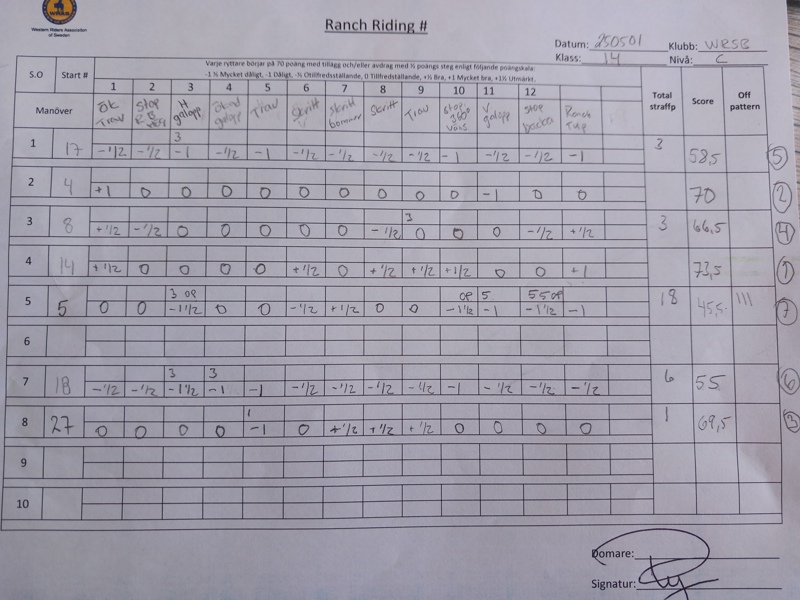 Western Riders Association
of Sweden
Ranch Riding #
Datum: 250501 Klubb: WRSB
Klass: 14 Nivå: C
Varje ryttare börjar på 70 poäng med tillägg och/eller avdrag med ½ poängs steg enligt följande poängskala:
-1 ½ Mycket dåligt, -1 Dåligt, -½ Otillfredsställande, 0 Tillfredställande, +½ Bra, +1 Mycket bra, +1½ Utmärkt.
S.O Start # 1 2 3 4 5 6 7 8 9 10 11 12 Total straffp Score Off pattern
Manöver Ök Trav Stop H galopp galopp Trav Skritt Skritt bommar Skritt Trav Stop 360° V galopp Stop backa Ranch
3
1 17 -1/2 -1/2 -1 -1/2 -1 -1/2 -1/2 -1/2 -1/2 -1 -1/2 -1/2 -1 3 58,5 5
2 4 +1 0 0 0 0 0 0 0 0 0 -1 0 0 70 2
3
3 8 +1/2 -1/2 0 0 0 0 0 -1/2 0 0 0 -1/2 +1/2 3 66,5 4
4 14 +1/2 0 0 0 0 +1/2 0 +1/2 +1/2 +1/2 0 0 +1 73,5 1
3 OP OP 5 5 5 OP
5 5 0 0 -1 1/2 0 0 -1/2 +1/2 0 0 -1 1/2 -1 -1 1/2 -1 18 45,5 III 7
6
3 3
7 18 -1/2 -1/2 -1 1/2 -1 -1 -1/2 -1/2 -1/2 -1/2 -1 -1/2 -1/2 -1/2 6 55 6
1
8 27 0 0 0 0 -1 0 +1/2 +1/2 +1/2 0 0 0 0 1 69,5 3
9
10
Domare:
Signatur: